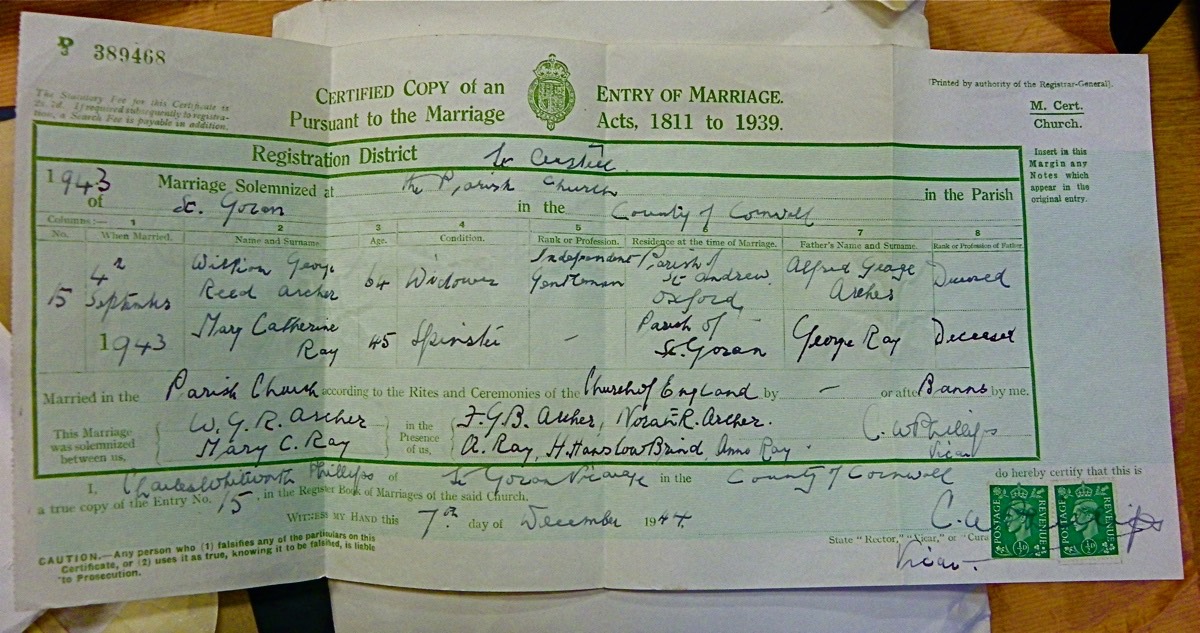 P 3 389468
The Statutory Fee for this Certificate is
2s. 7d. If required subsequently to registra-
tion, a Search Fee is payable in addition.
CERTIFIED COPY of an ENTRY OF MARRIAGE.
Pursuant to the Marriage Acts, 1811 to 1939.
(Printed by authority of the Registrar-General).
M. Cert.
Church.
Insert in this
Margin any
Notes which
appear in the
original entry.
Registration District St Austell
1943 Marriage Solemnized at the Parish Church in the Parish
of St. Goran in the County of Cornwall
Columns:— 1 2 3 4 5 6 7 8
No. When Married. Name and Surname. Age. Condition. Rank or Profession. Residence at the time of Marriage. Father's Name and Surname. Rank or Profession of Father.
15 4 September 1943
William George Reed Archer 64 Widower Independent Gentleman Parish of St. Andrew Oxford Alfred George Archer Deceased
Mary Catherine Ray 45 Spinster — Parish of St. Goran George Ray Deceased
Married in the Parish Church according to the Rites and Ceremonies of the Church of England by — or after Banns by me.
This Marriage was solemnized between us, W. G. R. Archer Mary C. Ray
in the Presence of us, F. G. B. Archer, Norah R. Archer. A. Ray, H. Hanslow Brind, Anno Ray.
C. W Phillips
Vicar
I, Charles Whitworth Phillips of St Goran Vicarage in the County of Cornwall do hereby certify that this is
a true copy of the Entry No. 15, in the Register Book of Marriages of the said Church.
WITNESS MY HAND this 7th day of December 1944
State "Rector," "Vicar," or "Cura
Vicar.
CAUTION.—Any person who (1) falsifies any of the particulars on this
Certificate, or (2) uses it as true, knowing it to be falsified, is liable
to Prosecution.
POSTAGE REVENUE ½D
POSTAGE REVENUE ½D